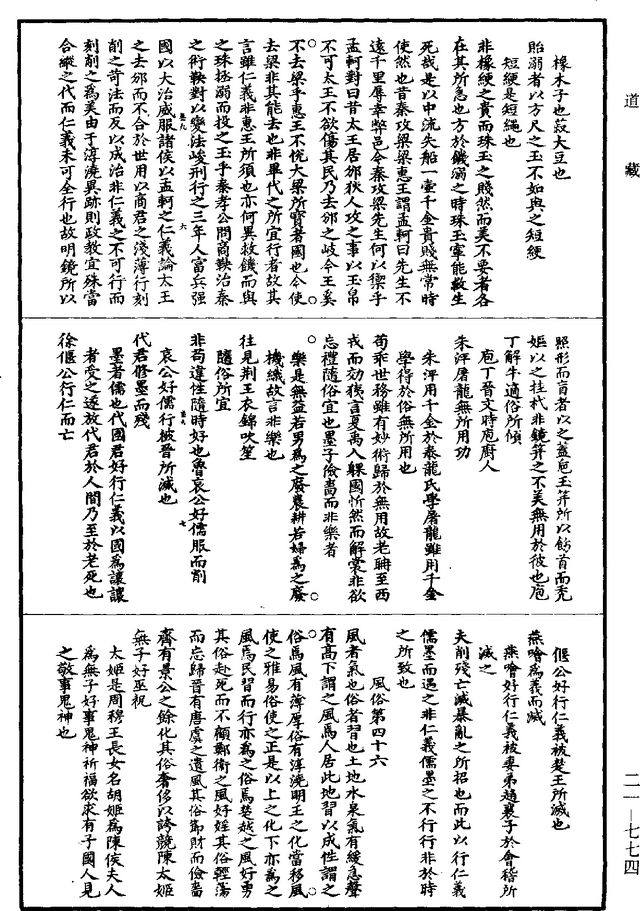 道藏
橡木子也菽大豆也
貽溺者以方尺之玉不如與之短綆
短綆是短繩也
非橡綆之貴而珠玉之賤然而美不要者各
在其所急也方於饑溺之時珠玉寧能救生
死哉是以中流失船一壺千金貴賤無常時
使然也昔秦攻梁梁惠王謂孟軻曰先生不
遠千里辱幸弊邑今秦攻梁先生何以禦乎
孟軻對曰昔太王居邠狄人攻之事以玉帛
不可太王不欲傷其民乃去邠之岐今王奚
不去梁乎惠王不悅大梁所寶者國也今使
去梁非其能去也非畢代之所宜行者故其
言雖仁義非惠王所須也亦何異救饑而與
之珠拯溺而投之玉乎秦孝公問商鞅治秦
之術鞅對以變法峻刑行之三年人富兵强
國以大治威服諸侯以孟軻之仁義論太王
之去邠而不合於世用以商君之淺薄行刻
削之苛法而反以成治非仁義之不可行而
刻削之為美由于淳澆異跡則政教宜殊當
合縱之代而仁義未可全行也故明鏡所以
照形而盲者以之蓋卮玉笄所以飾首而禿
嫗以之挂杙非鏡笄之不美無用於彼也庖
丁解牛適俗所傾
庖丁晉文時庖廚人
朱泙屠龍無所用功
朱泙用千金於秦龍氏學屠龍雖用千金
學得於俗無所用也
苟乖世務雖有妙術歸於無用故老聃至西
戎而効殘言夏禹入躶國忻然而解裳非欲
忘禮隨俗宜也墨子儉嗇而非樂者
樂是無益若男為之廢農耕若婦為之廢
機織故言非樂也
往見荊王衣錦吹笙
隨俗所宜
非苟違性隨時好也魯哀公好儒服而削
哀公好儒行被晉所滅也
代君修墨而殘
墨者儒也代國君好行仁義以國為讓讓
者受之遂放代君於人間乃至於老死也
徐偃公行仁而亡
偃公好行仁義被楚王所滅也
燕噲為義而滅
燕噲好行仁義被妻弟趙襄子於會稽所
滅之
夫削殘亡滅暴亂之所招也而此以行仁義
儒墨而遇之非仁義儒墨之不行行非於時
之所致也
風俗第四十六
風者氣也俗者習也土地水泉氣有緩急聲
有高下謂之風焉人居此地習以成性謂之
俗焉風有薄厚俗有淳澆明王之化當移風
使之雅易俗使之正是以上之化下亦為之
風焉民習而行亦為之俗焉楚越之風好勇
其俗赴死而不顧鄭衛之風好婬其俗輕蕩
而忘歸晉有唐虞之遺風其俗節財而儉嗇
齊有景公之餘化其俗奢侈以誇競陳太姬
無子好巫祝
太姬是周穆王長女名胡姬為陳侯夫人
為無子好事鬼神祈福欲求有子國人見
之敬事鬼神也
二一—七七四